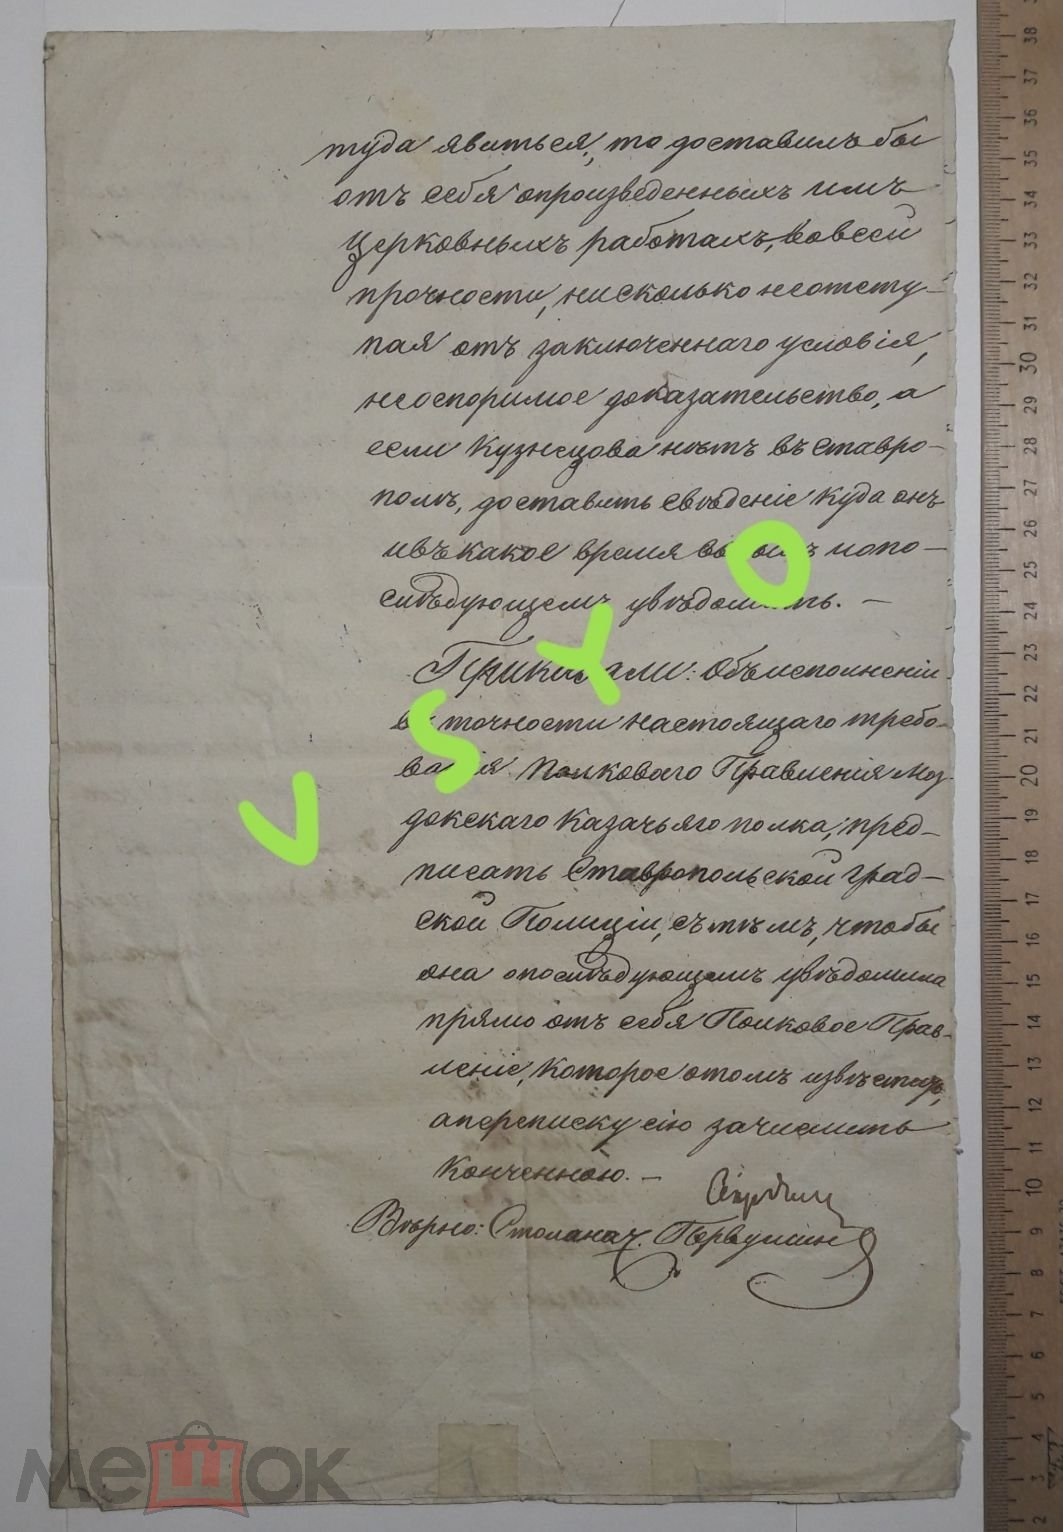 туда явиться, то доставилъ бы
отъ себя опроизведенныхъ имъ
Церковныхъ работахъ, вовсей
прочности, нисколько неотсту-
пая отъ заключеннаго условія,
неоспоримое доказательство, а
если Кузнецова нѣтъ въ Ставро-
полѣ, доставить свѣденіе Куда онъ
ивъ какое время и опо-
слѣдующемъ увѣдомить. —
Приказали: Объ исполненіи
въ точности настоящаго требо-
ванія Полковаго Правленія Моз-
докскаго Казачьяго полка, пред-
писать Ставропольской Град-
ской Полиціи, съ тѣмъ, чтобы
она опослѣдующемъ увѣдомила
прямо отъ себя Полковое Прав-
леніе, Которое отомъ извѣстить,
а переписку сію зачислить
Конченною. —
Вѣрно: Столонач. Первушин
V S Y O
мешок
38
37
36
35
34
33
32
31
30
29
28
27
26
25
24
23
22
21
20
19
18
17
16
15
14
13
12
11
10
9
8
7
6
5
4
3
2